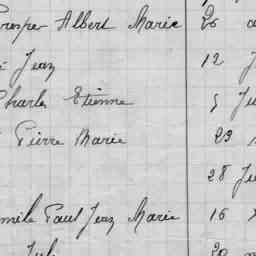 Prosper Albert Marie 26
Jean 12 J
Charles Etienne 5 Ju
Pierre Marie 23
28 Ju
Emile Paul Jean Marie 16
Jul 20